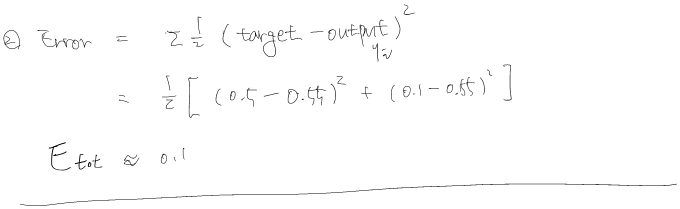 ② Error = Σ 1/2 (target - output)²
= 1/2 [ (0.5 - 0.55)² + (0.1 - 0.55)² ]
E tot ≈ 0.1